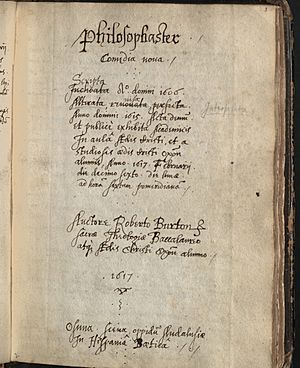 Philosophaster
Comœdia nova.
Scripta
Inchoata Ao domini 1606.
Alterata, renovata, perfecta
Anno domini 1615. Acta demum
et publice exhibita Academicis
In aula Ædis Christi, et a
studiosis ædis Christi Oxon
alumnis, Anno. 1617. Februarij
die decimo sexto. die lunæ
ad horam sextam pomeridianam
Auctore Roberto Burton
sacræ Theologiæ Baccalaureo
atq Ædis Christi Oxon alumno.
1617.
Osuna scena oppidum Andalusiæ
In Hispania Bætica